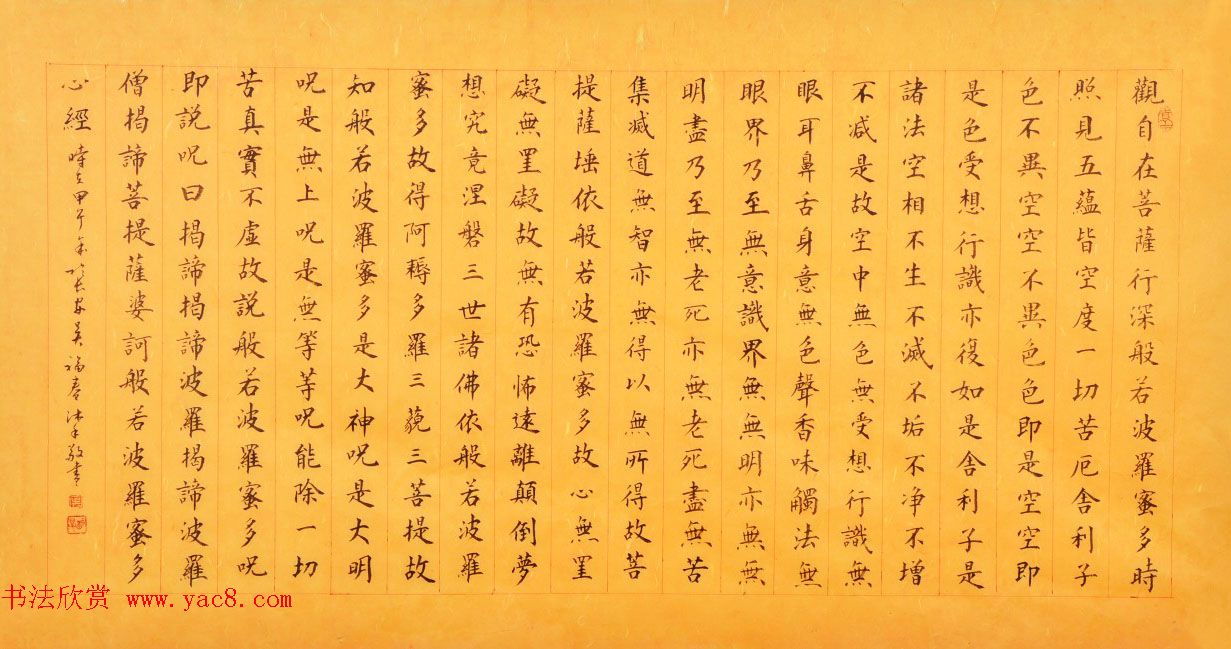 觀自在菩薩行深般若波羅蜜多時
照見五蘊皆空度一切苦厄舎利子
色不異空空不異色色即是空空即
是色受想行識亦復如是舎利子是
諸法空相不生不滅不垢不净不增
不減是故空中無色無受想行識無
眼耳鼻舌身意無色聲香味觸法無
眼界乃至無意識界無無明亦無無
明盡乃至無老死亦無老死盡無苦
集滅道無智亦無得以無所得故菩
提薩埵依般若波羅蜜多故心無罣
礙無罣礙故無有恐怖遠離顛倒夢
想究竟涅磐三世諸佛依般若波羅
蜜多故得阿耨多羅三藐三菩提故
知般若波羅蜜多是大神呪是大明
呪是無上呪是無等等呪能除一切
苦真實不虛故説般若波羅蜜多呪
即説呪曰揭諦揭諦波羅揭諦波羅
僧揭諦菩提薩婆訶般若波羅蜜多
心經 時在甲午年於長安吴福春沐手敬書
书法欣赏 www.yac8.com